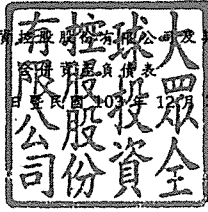 大眾全
球投資
控股股份
有限公司
資控股股份有限公司及
合併資產負債表
日暨民國 103 年 12 月